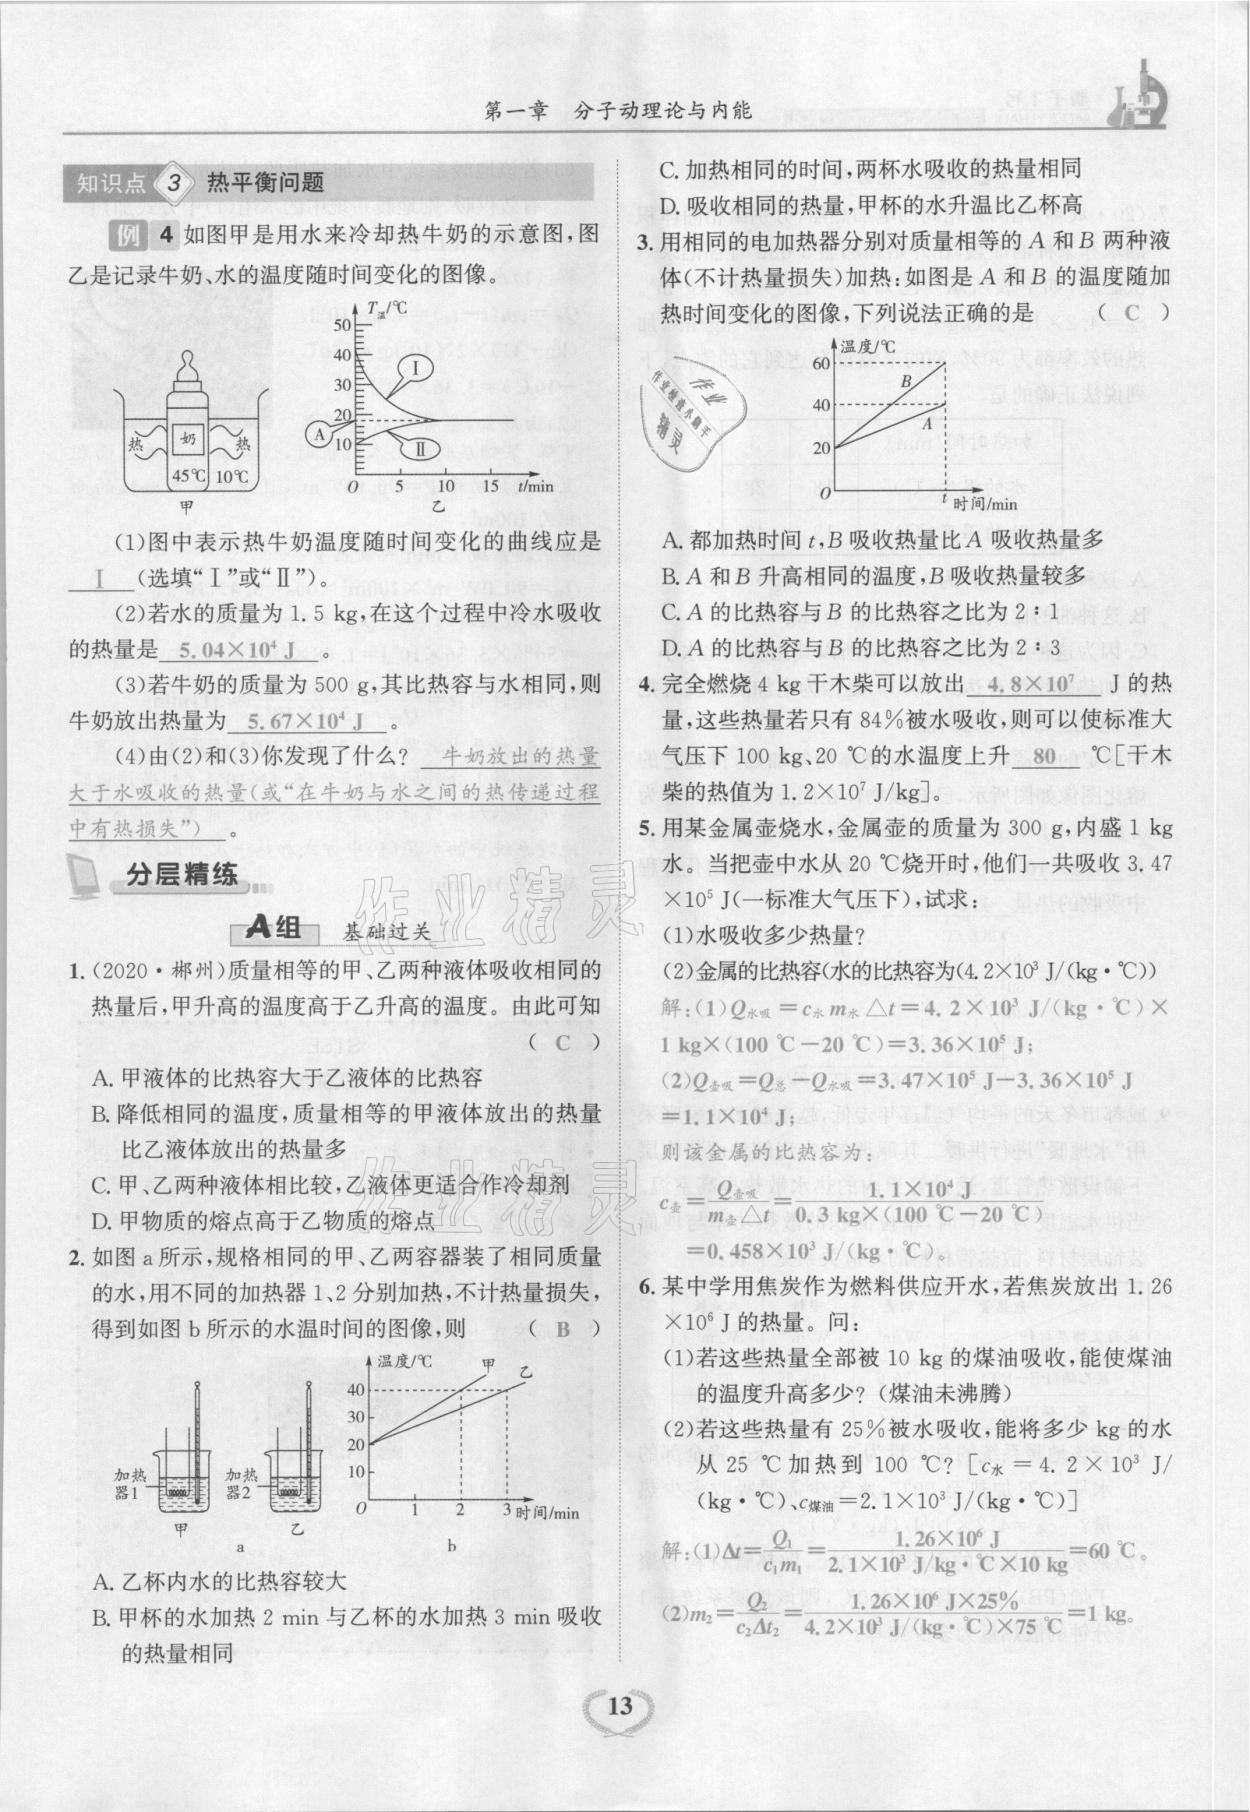 第一章 分子动理论与内能
知识点 3 热平衡问题
例 4 如图甲是用水来冷却热牛奶的示意图,图
乙是记录牛奶、水的温度随时间变化的图像。
T温/℃
50
40
30
20
10
0 5 10 15 t/min
Ⅰ
Ⅱ
A
乙
热 奶 热
45℃ 10℃
甲
(1)图中表示热牛奶温度随时间变化的曲线应是
Ⅰ (选填“Ⅰ”或“Ⅱ”)。
(2)若水的质量为 1.5 kg,在这个过程中冷水吸收
的热量是 5.04×10⁴ J 。
(3)若牛奶的质量为 500 g,其比热容与水相同,则
牛奶放出热量为 5.67×10⁴ J 。
(4)由(2)和(3)你发现了什么? 牛奶放出的热量
大于水吸收的热量(或“在牛奶与水之间的热传递过程
中有热损失”) 。
分层精练
A组 基础过关
1. (2020·郴州)质量相等的甲、乙两种液体吸收相同的
热量后,甲升高的温度高于乙升高的温度。由此可知
( C )
A. 甲液体的比热容大于乙液体的比热容
B. 降低相同的温度,质量相等的甲液体放出的热量
比乙液体放出的热量多
C. 甲、乙两种液体相比较,乙液体更适合作冷却剂
D. 甲物质的熔点高于乙物质的熔点
2. 如图 a 所示,规格相同的甲、乙两容器装了相同质量
的水,用不同的加热器 1、2 分别加热,不计热量损失,
得到如图 b 所示的水温时间的图像,则 ( B )
加热
器1
甲
加热
器2
乙
a
温度/℃
甲 乙
40
30
20
10
0 1 2 3 时间/min
b
A. 乙杯内水的比热容较大
B. 甲杯的水加热 2 min 与乙杯的水加热 3 min 吸收
的热量相同
C. 加热相同的时间,两杯水吸收的热量相同
D. 吸收相同的热量,甲杯的水升温比乙杯高
3. 用相同的电加热器分别对质量相等的 A 和 B 两种液
体(不计热量损失)加热:如图是 A 和 B 的温度随加
热时间变化的图像,下列说法正确的是 ( C )
温度/℃
60
40
20
0 t 时间/min
B
A
作业
作业检查小助手
精灵
A. 都加热时间 t,B 吸收热量比 A 吸收热量多
B. A 和 B 升高相同的温度,B 吸收热量较多
C. A 的比热容与 B 的比热容之比为 2∶1
D. A 的比热容与 B 的比热容之比为 2∶3
4. 完全燃烧 4 kg 干木柴可以放出 4.8×10⁷ J 的热
量,这些热量若只有 84%被水吸收,则可以使标准大
气压下 100 kg、20 ℃的水温度上升 80 ℃[干木
柴的热值为 1.2×10⁷ J/kg]。
5. 用某金属壶烧水,金属壶的质量为 300 g,内盛 1 kg
水。当把壶中水从 20 ℃烧开时,他们一共吸收 3.47
×10⁵ J(一标准大气压下),试求:
(1)水吸收多少热量?
(2)金属的比热容(水的比热容为(4.2×10³ J/(kg·℃))
解:(1)Q水吸=c水m水△t=4.2×10³ J/(kg·℃)×
1 kg×(100 ℃-20 ℃)=3.36×10⁵ J;
(2)Q壶吸=Q总-Q水吸=3.47×10⁵ J-3.36×10⁵ J
=1.1×10⁴ J;
则该金属的比热容为:
c壶=Q壶吸/m壶△t=1.1×10⁴ J/0.3 kg×(100 ℃-20 ℃)
=0.458×10³ J/(kg·℃)。
6. 某中学用焦炭作为燃料供应开水,若焦炭放出 1.26
×10⁶ J 的热量。问:
(1)若这些热量全部被 10 kg 的煤油吸收,能使煤油
的温度升高多少?(煤油未沸腾)
(2)若这些热量有 25%被水吸收,能将多少 kg 的水
从 25 ℃加热到 100 ℃?[c水=4.2×10³ J/
(kg·℃)、c煤油=2.1×10³ J/(kg·℃)]
解:(1)Δt=Q₁/c₁m₁=1.26×10⁶ J/2.1×10³ J/kg·℃×10 kg=60 ℃。
(2)m₂=Q₂/c₂Δt₂=1.26×10⁶ J×25%/4.2×10³ J/(kg·℃)×75 ℃=1 kg。
作业精灵
作业精灵
13